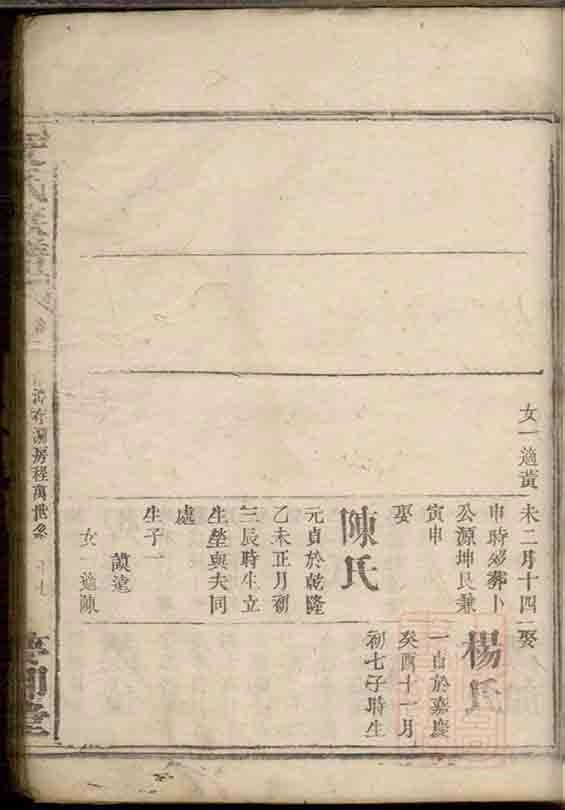 女一適黃
未二月十四
申時歿葬卜
公源坤艮兼
寅申
娶
陳氏
元貞於乾隆
乙未正月初
三辰時生立
生塋與夫同
處
生子一
女一適陳
娶
楊氏
一貞於嘉慶
癸酉十一月
初七子時生
房程萬世系